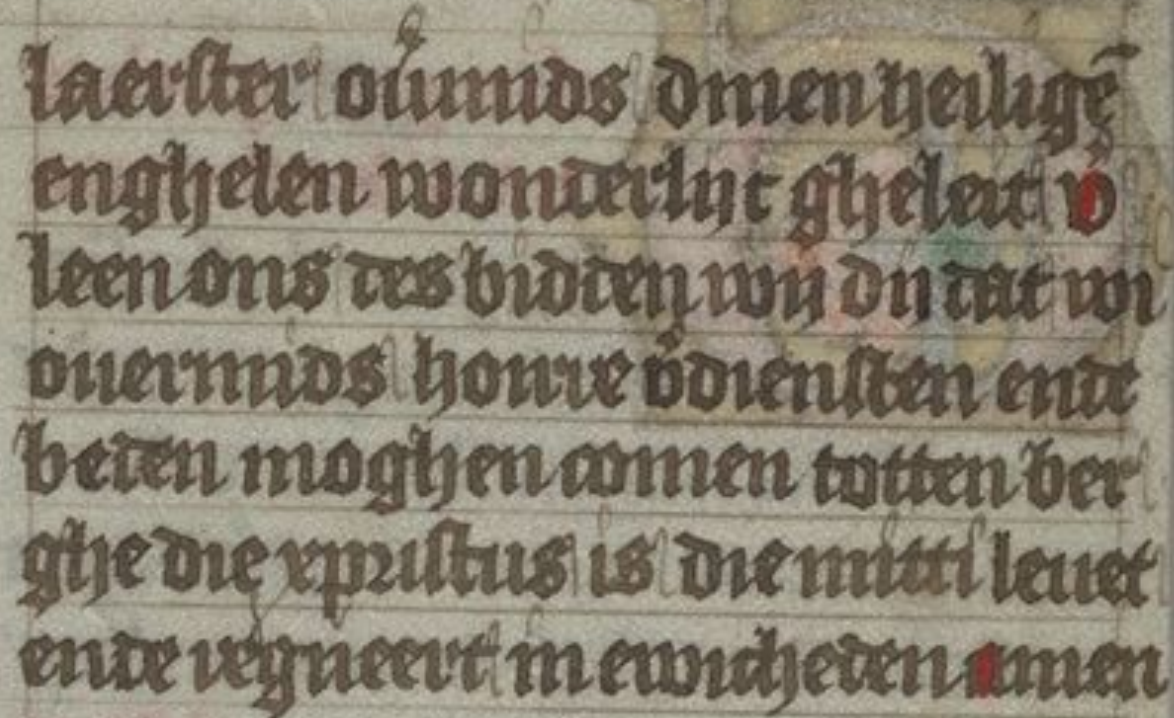 laerster ou̾mids dinen heilighē
enghelen wonderlijc gheleit v̾
leen ons des bidden wij di dat wi
ouermids hoirre v̾diensten ende
beden moghen comen totten ber
ghe die xpristus is die mitti leuet
ende regneert in ewicheden amen